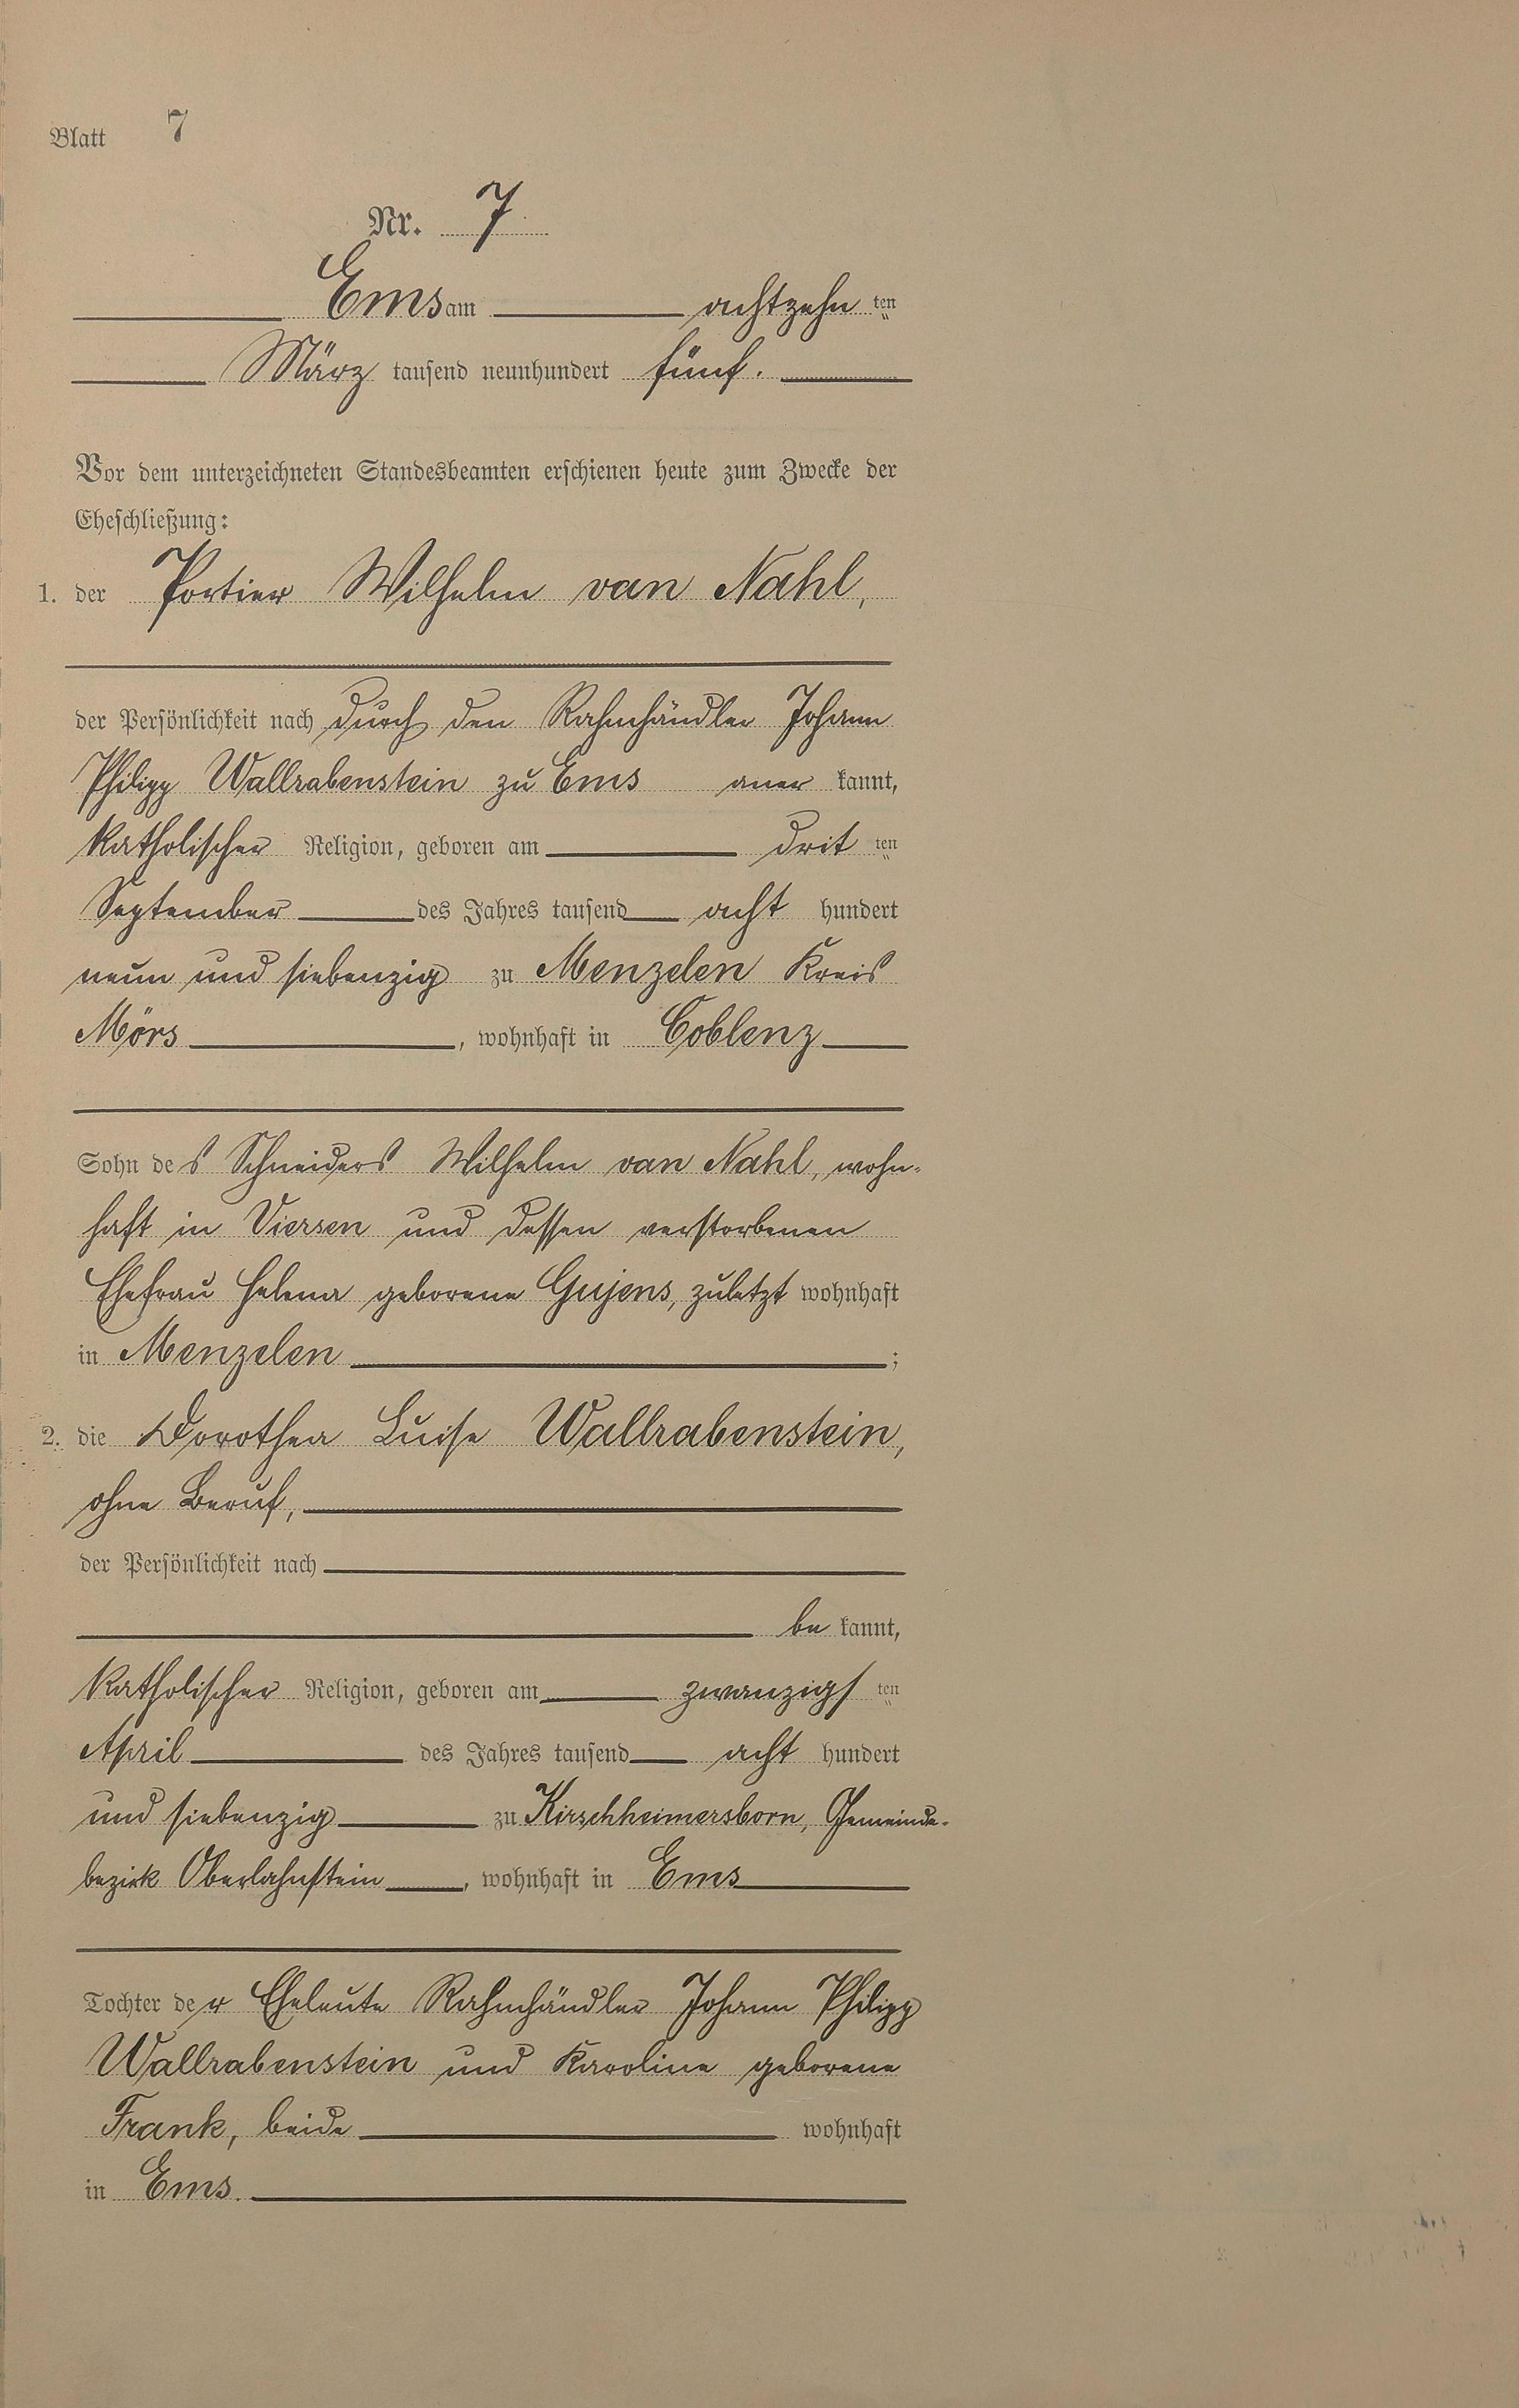 Blatt 7
Nr. 7
Ems am achtzehn ten
März tausend neunhundert fünf.
Vor dem unterzeichneten Standesbeamten erschienen heute zum Zwecke der
Eheschließung:
1. der Portier Wilhelm van Nahl,
der Persönlichkeit nach durch den Rahmhändler Johann
Philipp Wallrabenstein zu Ems aner kannt,
katholischer Religion, geboren am drit ten
September des Jahres tausend acht hundert
neun und siebenzig zu Menzelen Kreis
Mörs, wohnhaft in Coblenz
Sohn des Schneiders Wilhelm van Nahl, wohn-
haft in Viersen und dessen verstorbenen
Ehefrau Helena geborene Gujens, zuletzt wohnhaft
in Menzelen;
2. die Dorothea Luise Wallrabenstein,
ohne Beruf,
der Persönlichkeit nach
be kannt,
katholischer Religion, geboren am zwanzigs ten
April des Jahres tausend acht hundert
und siebenzig zu Kirschheimersborn, Gemeinde-
bezirk Oberlahnstein, wohnhaft in Ems
Tochter der Eheleute Rahmhändler Johann Philipp
Wallrabenstein und Karoline geborene
Frank, beide wohnhaft
in Ems.